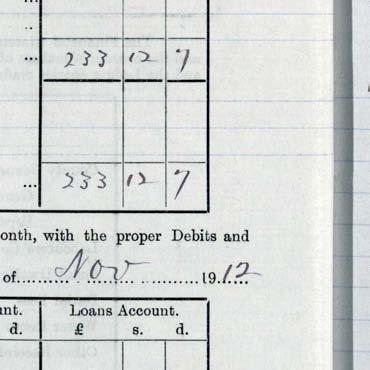 ... 233 12 7
... 233 12 7
onth, with the proper Debits and
of.......... Nov .......... 1912
nt. Loans Account.
d. £ s. d.